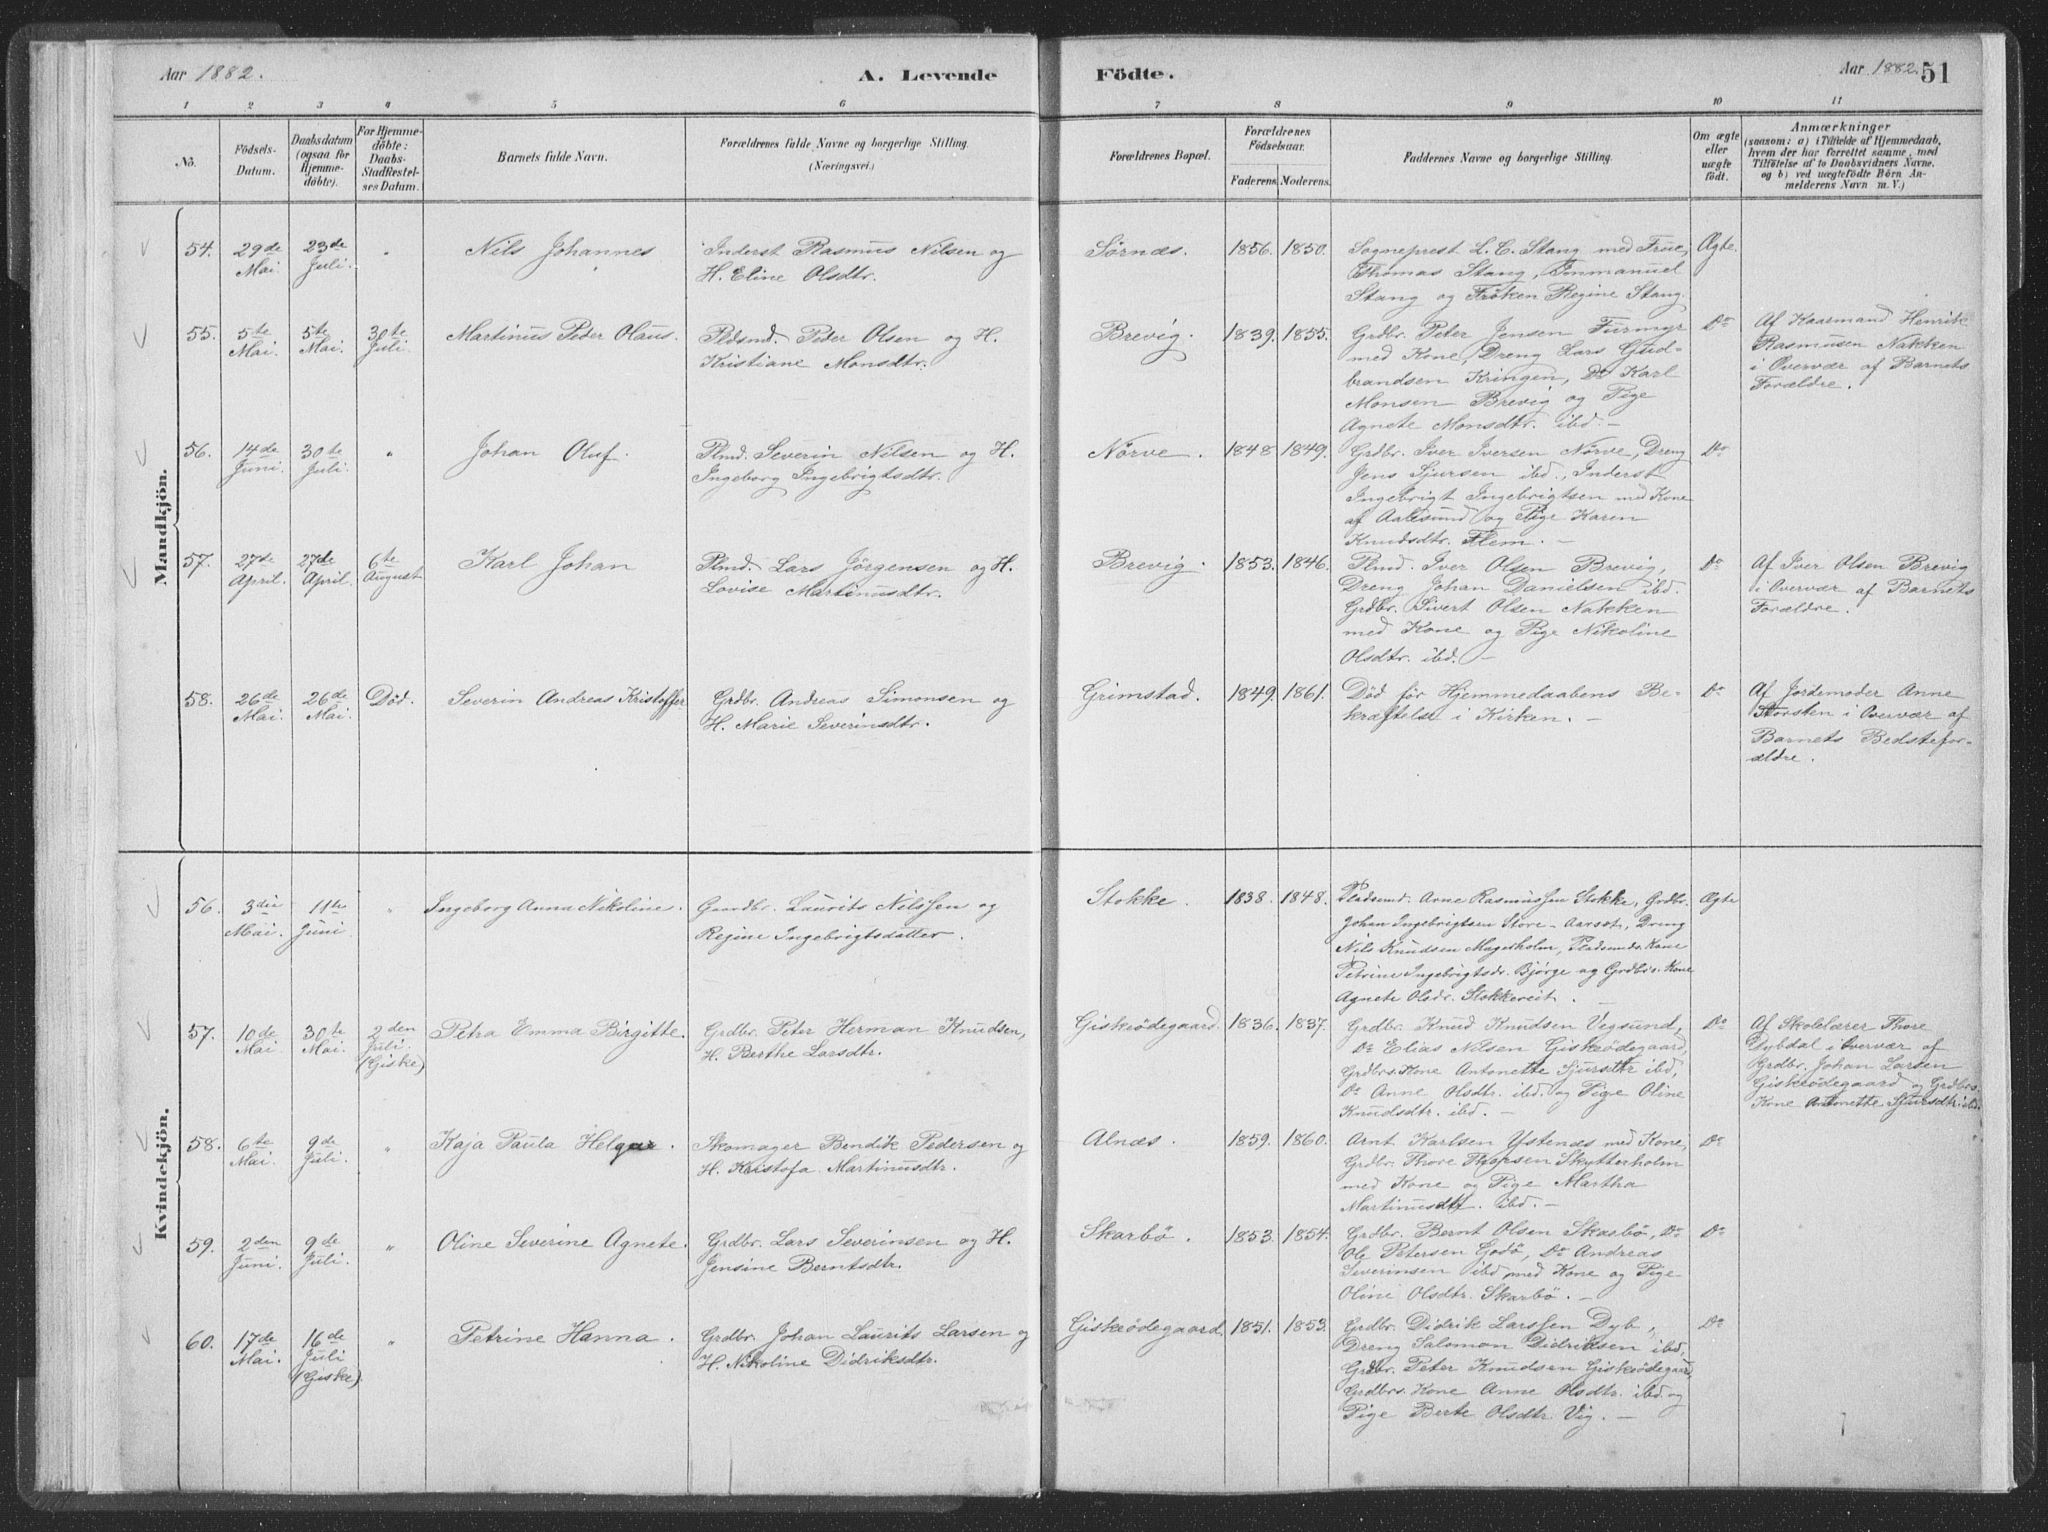 Aar 1882. A. Levende Födte. Aar 1882. 51
1 2 3 4 5 6 7 8 9 10 11
No.
Födsels-Datum.
Daabsdatum (ogsaa for Hjemme-döbte).
For Hjemme-döbte: Daabs-Stadfæstel-ses Datum.
Barnets fulde Navn.
Forældrenes fulde Navne og borgerlige Stilling. (Næringsvei.)
Forældrenes Bopæl.
Forældrenes Födselsaar.
Faderens. Moderens.
Faddernes Navne og borgerlige Stilling.
Om ægte eller uægte födt.
Anmærkninger
(saasom: a) i Tilfælde af Hjemmedaab,
hvem der har forrettet samme, med
Tilföielse af to Daabsvidners Navne,
og b) ved uægtefödte Börn An-
melderens Navn m. V.)
Mandkjön.
54. 29de Mai. 23de Juli. "
Nils Johannes
Inderst Rasmus Nilsen og
H. Eline Olsdtr.
Sørnæs. 1856. 1850.
Sogneprest L. C. Stang med Frue,
Thomas Stang, Emmanuel
Stang og Frøken Regine Stang.
Ægte.
55. 5te Mai. 5te Mai. 30te Juli.
Martinus Peder Olaus.
Pldsmd. Peder Olsen og H.
Kristiane Monsdtr.
Brevig. 1839. 1855.
Grdbr. Peter Jensen Furmyr
med Kone, Dreng Lars Gud-
brandsen Kringen, Do Karl
Monsen Brevig og Pige
Agnete Monsdtr. ibd. –
Do
Af Kaarmand Henrik
Rasmusen Nakken
i Overvær af Barnets
Forældre.
56. 14de Juni. 30te Juli. "
Johan Oluf.
Plmd. Severin Nilsen og H.
Ingeborg Ingebrigtsdtr.
Nörve. 1848 1849.
Grdbr. Iver Iversen Nörve, Dreng
Jens Sjursen ibd., Inderst
Ingebrigt Ingebrigtsen med Kone
af Aalesund og Pige Karen
Knudsdtr. Flem. –
Do
57. 27de April. 27de April. 6te August
Karl Johan
Plmd. Lars Jørgensen og H.
Lovise Martinusdtr.
Brevig. 1853. 1846.
Plmd. Iver Olsen Brevig,
Dreng Johan Danielsen ibd.
Grdbr. Sivert Olsen Nakken
med Kone og Pige Nikoline
Olsdtr. ibd. –
Do
Af Iver Olsen Brevig
i Overvær af Barnets
Forældre.
58. 26de Mai. 26de Mai. Död.
Severin Andreas Kristoffer
Grdbr. Andreas Simonsen og
H. Marie Severinsdtr.
Grimstad. 1849. 1861.
Död för Hjemmedaabens Be-
kræftelse i Kirken. –
Do
Af Jordemoder Anne
Torsten i Overvær af
Barnets Bedstefor-
ældre.
Kvindekjön.
56. 3die Mai. 11te Juni "
Ingeborg Anna Nikoline.
Gaardbr. Laurits Nilssen og
Regine Ingebrigtsdatter.
Stokke. 1838. 1848.
Pladsmd. Arne Rasmussen Stokke, Grdbr.
Johan Ingebrigtsen Store-Aarsot, Dreng
Nils Knudsen Magerholm, Pladsmds. Kone
Petrine Ingebrigtsdr. Bjørge og Grdbrs. Kone
Agnete Olsdr. Stokkereit. –
Ægte
57. 10de Mai. 30te Mai. 2den Juli. (Giske)
Petra Emma Birgitte.
Grdbr. Peter Herman Knudsen,
H. Berthe Larsdtr.
Giskeödegaard. 1836. 1837.
Grdbr. Knud Knudsen Vegsund,
Do Elias Nilsen Giskeödegaard,
Grdbrs. Kone Antonette Sjursdtr ibd,
Do Anne Olsdtr. ibd. og Pige Oline
Knudsdtr. ibd. –
Do
Af Skolelærer Thore
Dybdal i Overvær af
Grdbr. Johan Larsen
Giskeödegaard og Grdbrs.
Kone Antonette Sjursdtr. ibd.
58. 6te Mai. 9de Juli. "
Kaja Paula Helga.
Skomager Bendik Pedersen og
H. Kristofa Martinusdtr.
Alnæs. 1859. 1860.
Arnt Karlsen Ystenæs med Kone,
Grdbr. Thore Thorsen Skytterholm
med Kone og Pige Martha
Martinusdtr. ibd. –
Do
59. 2den Juni. 9de Juli. "
Oline Severine Agnete.
Grdbr. Lars Severinsen og H.
Jensine Berntsdtr.
Skarbö. 1853. 1854.
Grdbr. Bernt Olsen Skarbö, Do
Ole Petersen Godö, Do Andreas
Severinsen ibd med Kone og Pige
Oline Olsdtr. Skarbö. –
Do
60. 17de Mai. 16de Juli (Giske). "
Petrine Hanna.
Grdbr. Johan Laurits Larsen og
H. Nikoline Didriksdtr.
Giskeödegaard 1851. 1853.
Grdbr. Didrik Larssen Dyb,
Dreng Salomon Didriksen ibd,
Grdbr. Peter Knudsen Giskeödegaar
Grdbrs. Kone Anne Olsdtr. ibd. og
Pige Berte Olsdtr. Vig. –
Do